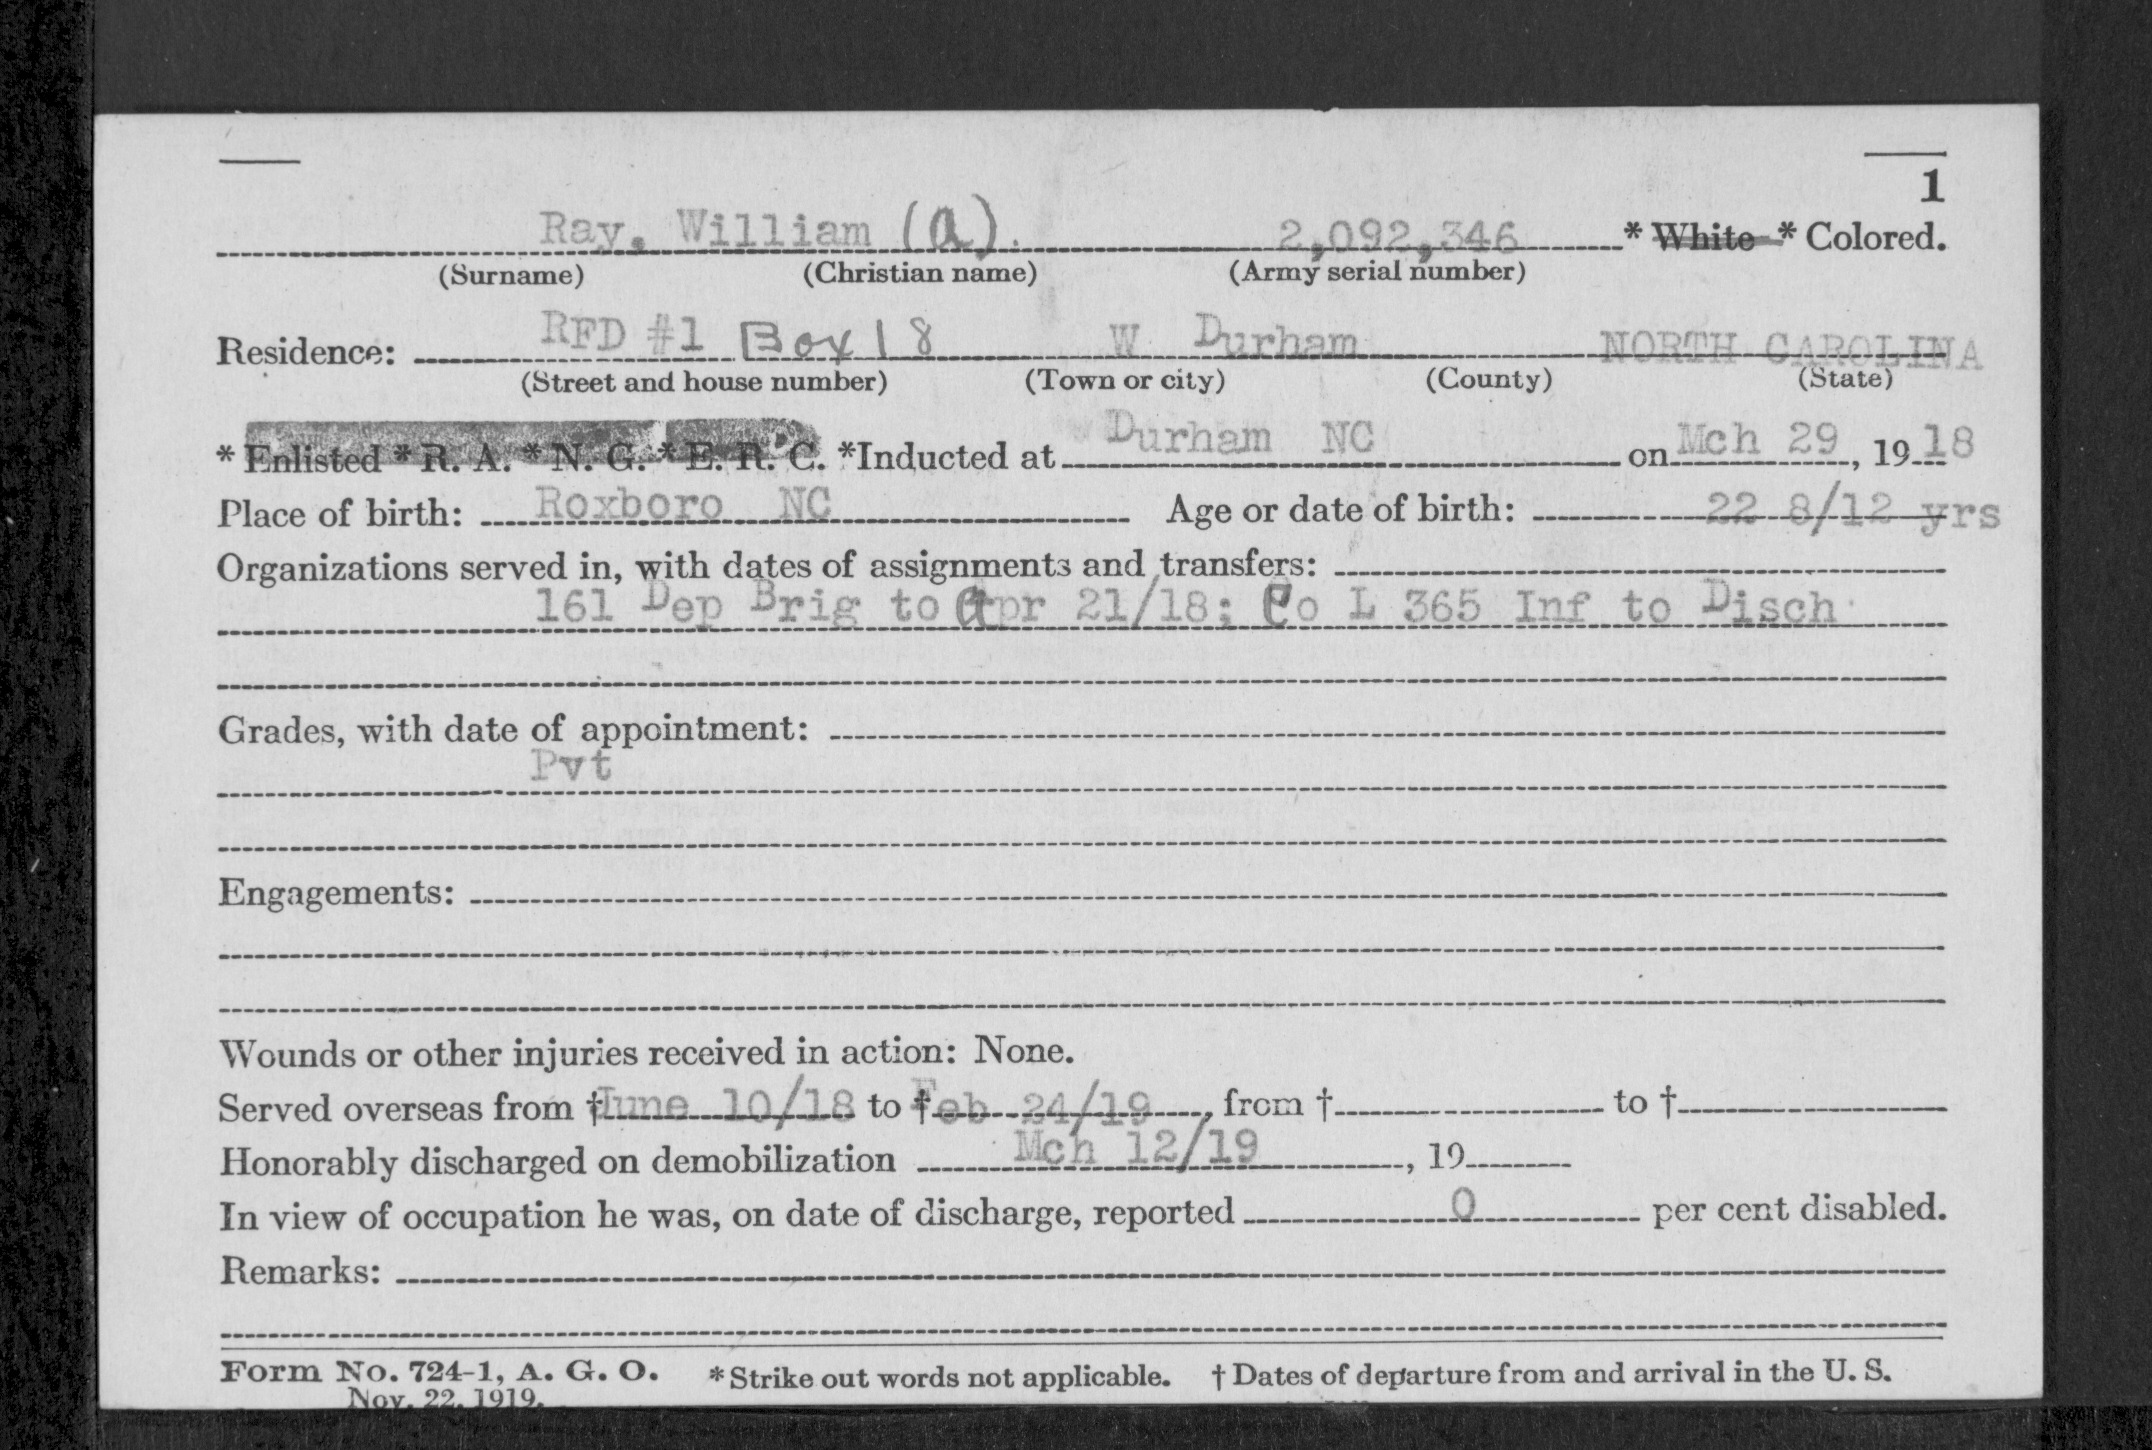 1
Ray, William (a). 2,092,346 * White * Colored.
(Surname) (Christian name) (Army serial number)
Residence: RFD #1 Box 18 W Durham NORTH CAROLINA
(Street and house number) (Town or city) (County) (State)
* Enlisted * R. A. * N. G. * E. R. C. *Inducted at Durham NC on Mch 29, 1918
Place of birth: Roxboro NC Age or date of birth: 22 8/12 yrs
Organizations served in, with dates of assignments and transfers:
161 Dep Brig to Apr 21/18; Co L 365 Inf to Disch
Grades, with date of appointment:
Pvt
Engagements:
Wounds or other injuries received in action: None.
Served overseas from †June 10/18 to †Feb 24/19, from † to †
Honorably discharged on demobilization Mch 12/19, 19
In view of occupation he was, on date of discharge, reported 0 per cent disabled.
Remarks:
Form No. 724-1, A. G. O. * Strike out words not applicable. † Dates of departure from and arrival in the U. S.
Nov. 22, 1919.